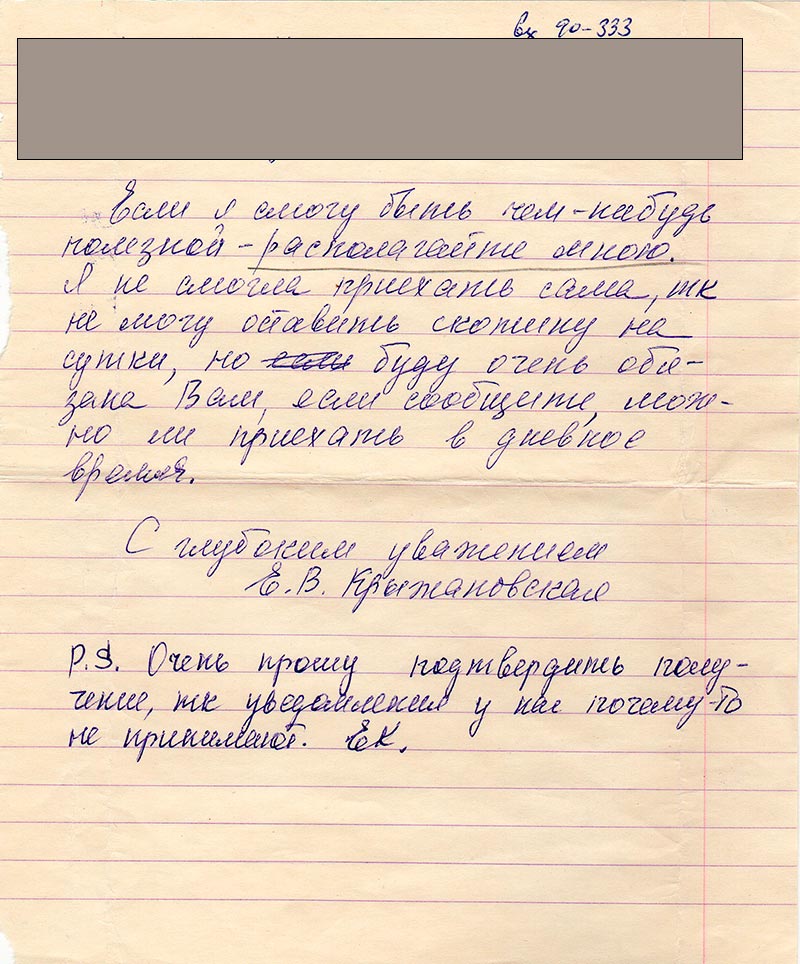 вх 90-333
Если я смогу быть чем-нибудь
полезной - располагайте мною.
Я не смогла приехать сама, тк
не могу оставить скотину на
сутки, но если буду очень обя-
зана Вам, если сообщите, мож-
но ли приехать в дневное
время.
С глубоким уважением
Е.В. Крыжановская
P.S. Очень прошу подтвердить полу-
чение, тк уведомления у нас почему-то
не принимают. ЕК.